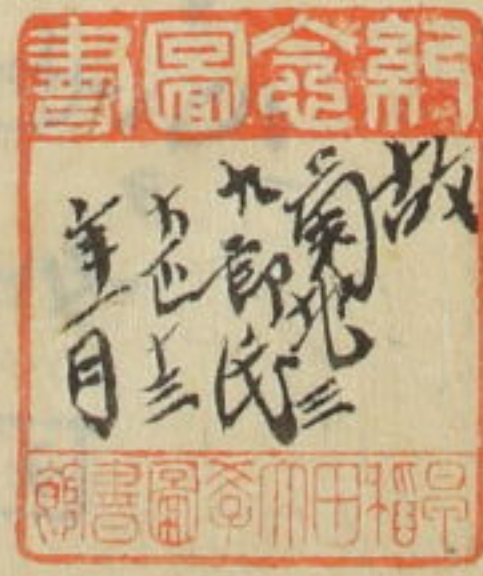 紀念圖書
故
菊池三
九郎氏
大正十三
年一月
早稻田大學圖書館